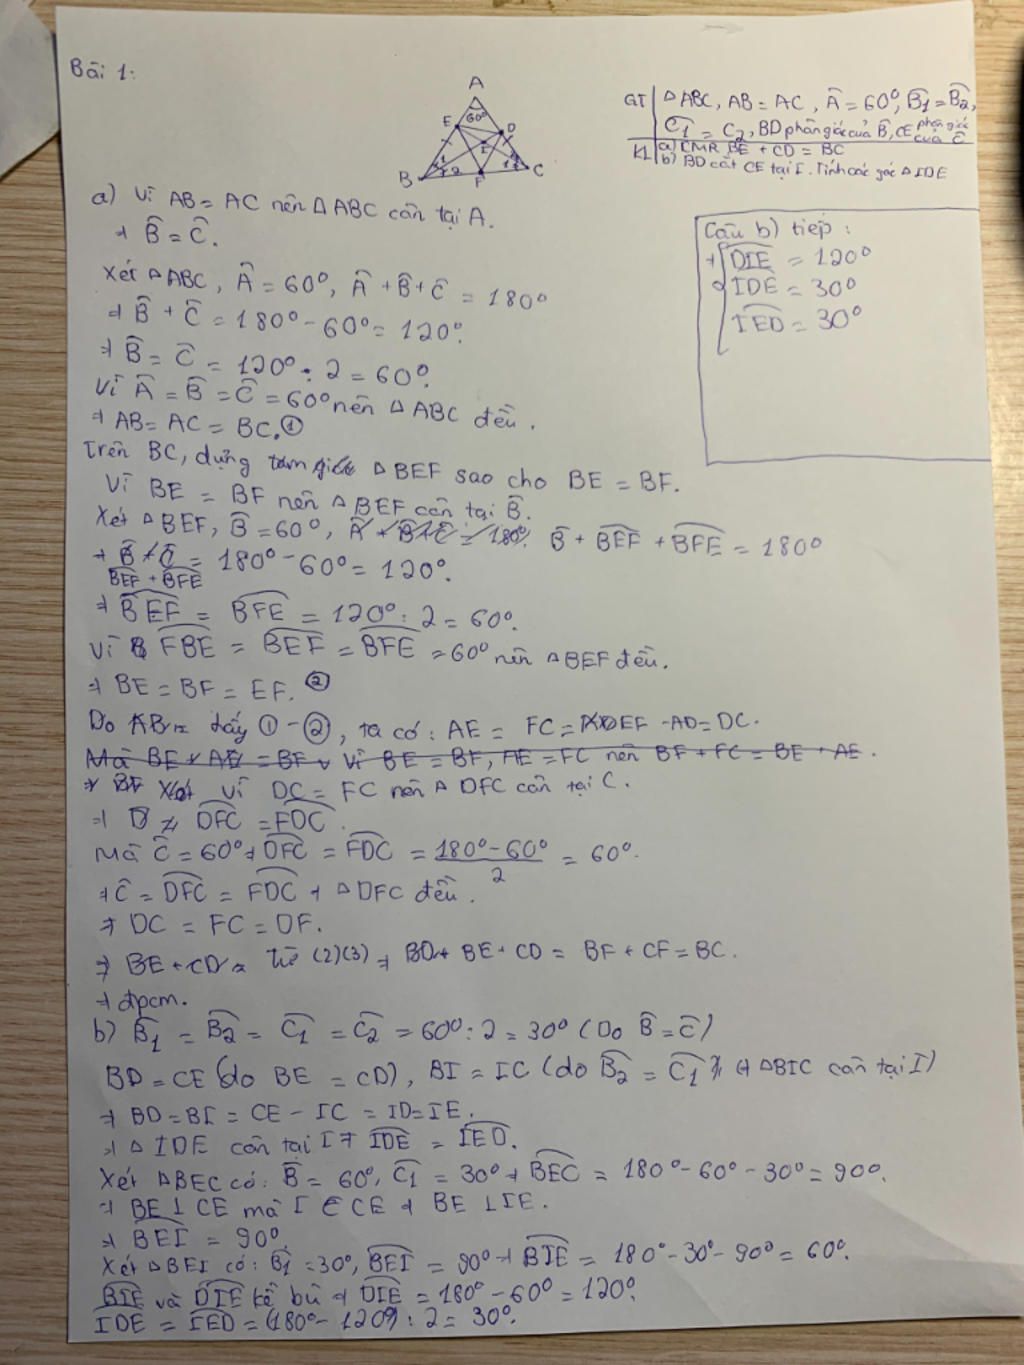 Bài 1:
A
E 60° D
I
1 2 1 2
B F C
GT △ABC, AB = AC, Â = 60°, B̂1 = B̂2,
Ĉ1 = C2, BD phân giác của B̂, CE phân giác của Ĉ
KL a) CMR BE + CD = BC
b) BD cắt CE tại I. Tính các góc △IDE
a) Vì AB = AC nên △ABC cân tại A.
⇒ B̂ = Ĉ.
Xét △ABC, Â = 60°, Â + B̂ + Ĉ = 180°
⇒ B̂ + Ĉ = 180° - 60° = 120°.
⇒ B̂ = Ĉ = 120° : 2 = 60°.
Vì Â = B̂ = Ĉ = 60° nên △ABC đều.
⇒ AB = AC = BC. ①
Trên BC, dựng △BEF sao cho BE = BF.
Vì BE = BF nên △BEF cân tại B̂.
Xét △BEF, B̂ = 60°, B̂ + BEF + BFE = 180°
⇒ BEF + BFE = 180° - 60° = 120°.
⇒ BEF = BFE = 120° : 2 = 60°.
Vì FBE = BEF = BFE = 60° nên △BEF đều.
⇒ BE = BF = EF. ②
Do đấy ① - ②, ta có: AE = FC = EF - AD = DC.
Mà BE + AE = BF Vì BE = BF, AE = FC nên BF + FC = BE + AE.
Vì DC = FC nên △DFC cân tại C.
⇒ DFC = FDC.
Mà Ĉ = 60° ⇒ DFC = FDC = 180° - 60° / 2 = 60°.
⇒ Ĉ = DFC = FDC ⇒ △DFC đều.
⇒ DC = FC = DF.
⇒ BE + CD Từ (2)(3) ⇒ BE + CD = BF + CF = BC.
⇒ đpcm.
b) B̂1 = B̂2 = Ĉ1 = Ĉ2 = 60° : 2 = 30° (Do B̂ = Ĉ)
BD = CE (do BE = CD), BI = IC (do B̂2 = Ĉ1 ⇒ △BIC cân tại I)
⇒ BD = BI = CE - IC = ID = IE.
⇒ △IDE cân tại I ⇒ IDE = IED.
Xét △BEC có: B̂ = 60°, Ĉ1 = 30° ⇒ BEC = 180° - 60° - 30° = 90°.
⇒ BE ⊥ CE mà I ∈ CE ⇒ BE ⊥ IE.
⇒ BEI = 90°.
Xét △BEI có: B̂1 = 30°, BEI = 90° ⇒ BIE = 180° - 30° - 90° = 60°.
BIE và DIE kề bù ⇒ DIE = 180° - 60° = 120°.
IDE = IED = (180° - 120°) : 2 = 30°.
Câu b) tiếp:
⇒ DIE = 120°
IDE = 30°
IED = 30°